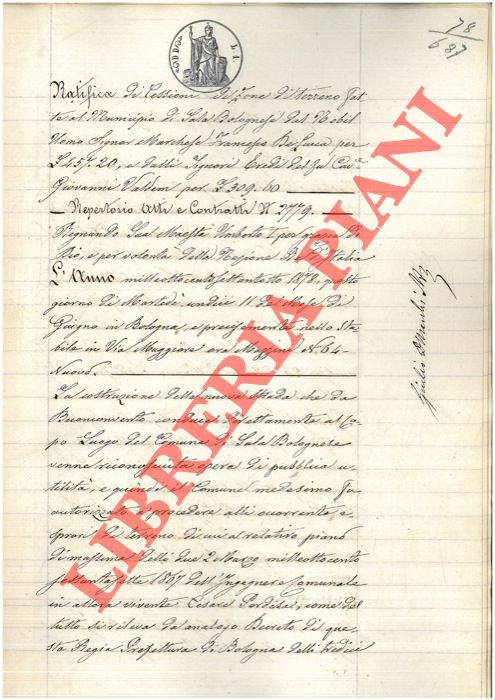 78
687
Ratifica di Cessioni di zone di terreno fat-
te al Municipio di Sala Bolognese dal Nobil
Uomo Signor Marchese Francesco De Luca per
£ 457.20, e dalli Signori Eredi del fu Cav.e
Giovanni Valdem per £ 309.60
Repertorio Atti e Contratti N. 2779.
Regnando Sua Maestà Umberto I, per grazia di
Dio, e per volontà della Nazione Re d'Italia
L'Anno milleottocentosettantotto 1878, questo
giorno di Martedì undici 11 del Mese di
Giugno in Bologna, e precisamente nello sta-
bile in Via Maggiore ora Mazzini N. 64
Nuovo.
La costruzione della nuova strada che da
Buonconvento conduce direttamente al Ca-
po Luogo del Comune di Sala Bolognese
venne riconosciuta opera di pubblica u-
tilità, e quindi il Comune medesimo fu
autorizzato a procedere alli occorrente e-
spropri di terreno di cui al relativo piano
di massima delli due 2 Marzo milleottocento
sessantasette 1867 dell'Ingegnere Comunale
in allora vivente Cesare Perdisa, come dal
tutto si rileva da analogo Decreto di que-
sta Regia Prefettura di Bologna delli tredici
Giulio
LIBRERIA PIANI